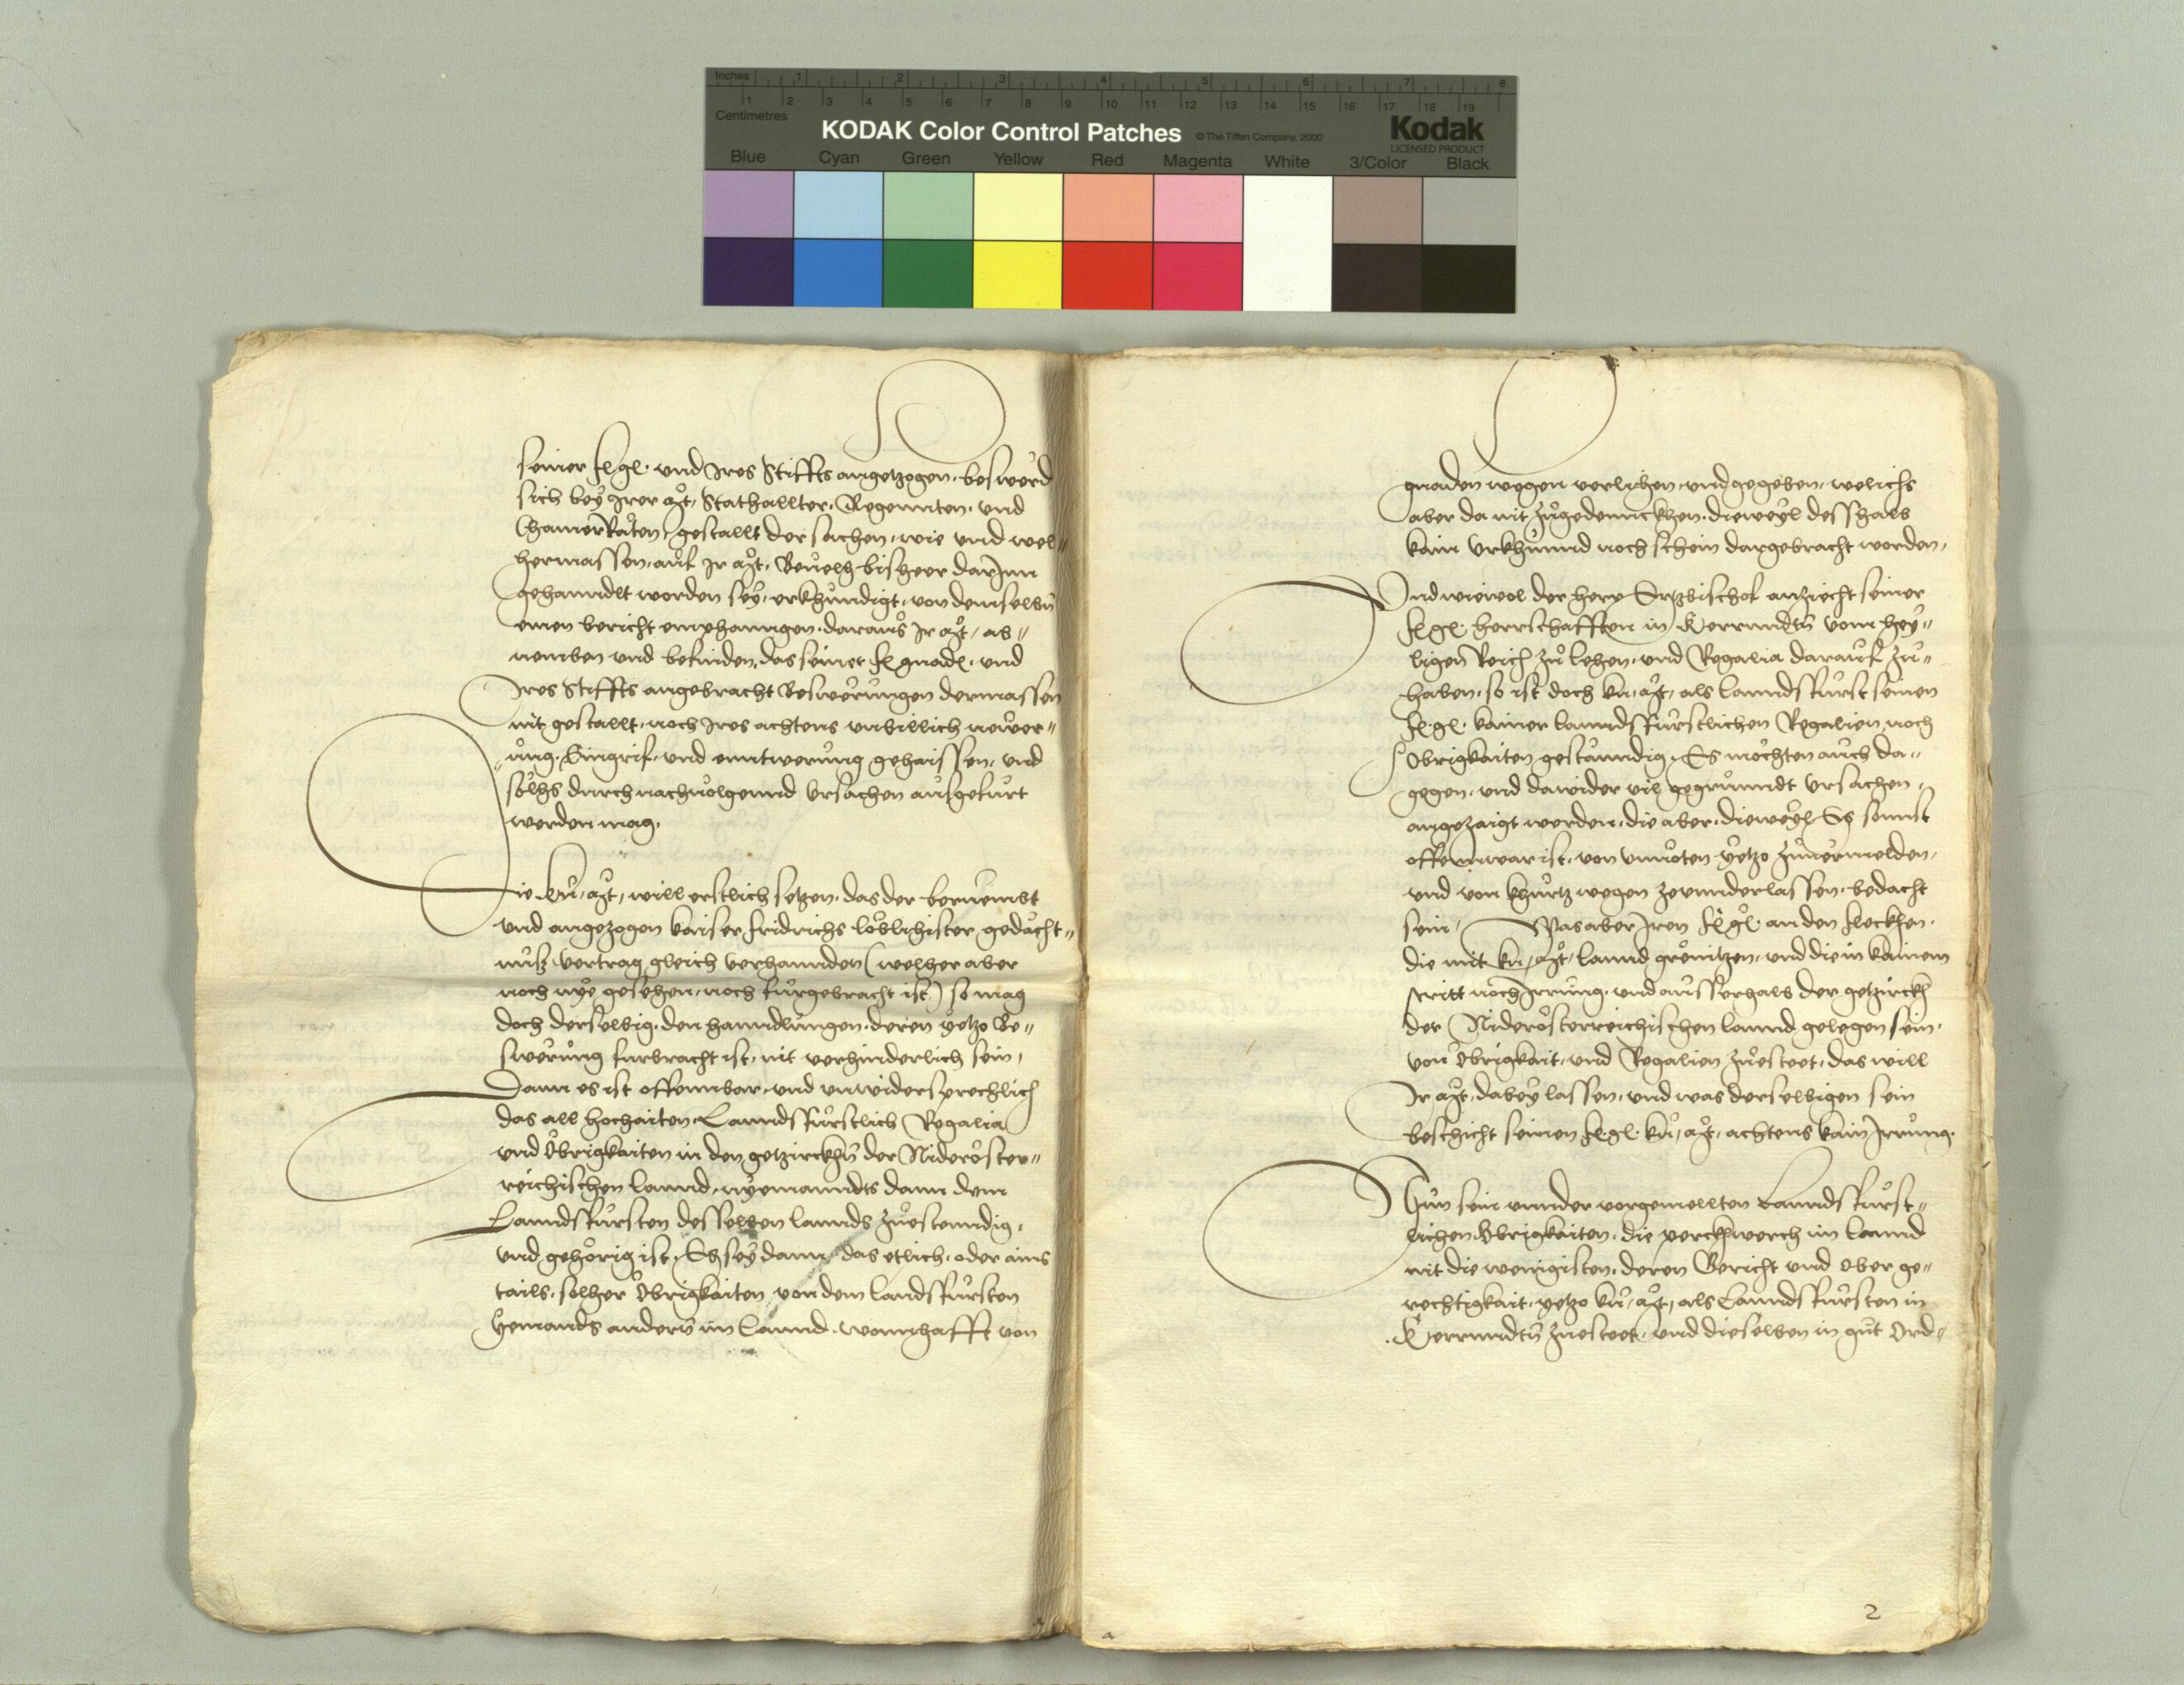 Inches 1 2 3 4 5 6 7 8
Centimetres 1 2 3 4 5 6 7 8 9 10 11 12 13 14 15 16 17 18 19
KODAK Color Control Patches © The Tiffen Company, 2000 Kodak
LICENSED PRODUCT
Blue Cyan Green Yellow Red Magenta White 3/Color Black
seiner f. gl. und Ires Stiffts angetzogen beswerd
sich bey Irer Mt. Stathallter, Regennten, und
Chamer Räten, gestallt der sachen, wie und wel„
hermassen, auf Ir Mt. Bevelh bisheer darInn
gehanndlt worden sey, erkhundigt, von demselbn
einen bericht emphanngen, daraus Ir Mt. ab„
nemben und befinden, das seiner f. gnad. und
Ires Stiffts angebracht Beswerungen dermassen
nit gestallt, noch Ires achtens unbillich newer„
„ung, Eingrif, und enntwerung gehaissen, und
solhs durch nachuolgennd Ursachen ausgefurt
werden mag.
Die Ku. Mt. will erstlich setzen, das der beruembt
und angezogen kaiser Fridrichs löblichister gedächt„
nuß vertrag gleich verhannden (welher aber
noch nye gesehen, noch furgebracht ist) so mag
doch derselbig, den hanndlungen, deren yetzo Be„
swerung furbracht ist, nit verhinderlich sein,
Dann es ist offennbar, und unwidersprechlich
das all hochaiten, Lanndsfürstlich Regalia
und Obrigkaiten in den getzirckhn der Nideröster„
reichischen lannd, nyemanndts dann dem
Lanndsfürsten desselben lannds zuestenndig,
und gehörig ist, Es sey dann, das etlich, oder ains
tails, solher Obrigkaiten, von dem landsfürsten
yemands andern im Lannd, wonhafft von
gnaden wegen verlihen, und gegeben, welichs
aber da nit zugedennckhen, dieweyl desshalb
kain Urkhunnd noch schein dargebracht worden,
Und wiewol der herr Ertzbischof anzeicht seiner
f. gl. herrschafften in Kerrnndtn vom hey„
ligen Reich zu lehen, und Regalia darauf zu„
haben, so ist doch ku. Mt. als lanndsfürst seinen
f. gl. kainer lanndsfürstlichen Regalien, noch
Obrigkaiten gestanndig, Es möchten auch da„
gegen, und dawider vil gegrunndt Ursachen,
angezaigt werden, die aber, dieweyl Es sonnst
offennwar ist, von unnöten yetzo zuuermelden,
und von khurtz wegen zeunnderlassen, bedacht
sein, Was aber Iren f. gl. an den fleckhen,
die mit ku. Mt. lannd grenitzen, und die in kainem
stritt noch Irrung, und ausserhalb der getzirckh
der Niderösterreichischen lannd gelegen sein,
von Obrigkait, und Regalien zuesteet, das will
Ir Mt. dabey lassen, und was derselbigen sein
beschicht seinen f. gl. ku. Mt. achtens kain Irrung.
Nun sein unnder vorgemellten Lanndsfürst„
lichen Obrigkaiten, die perckhwerch im lannd
nit die wenigisten, deren Gericht und Ober ge„
rechtigkait, yetzo ku. Mt. als Lanndsfürsten in
Kerrnndtn zuesteet, und dieselben in gut Ord„
2